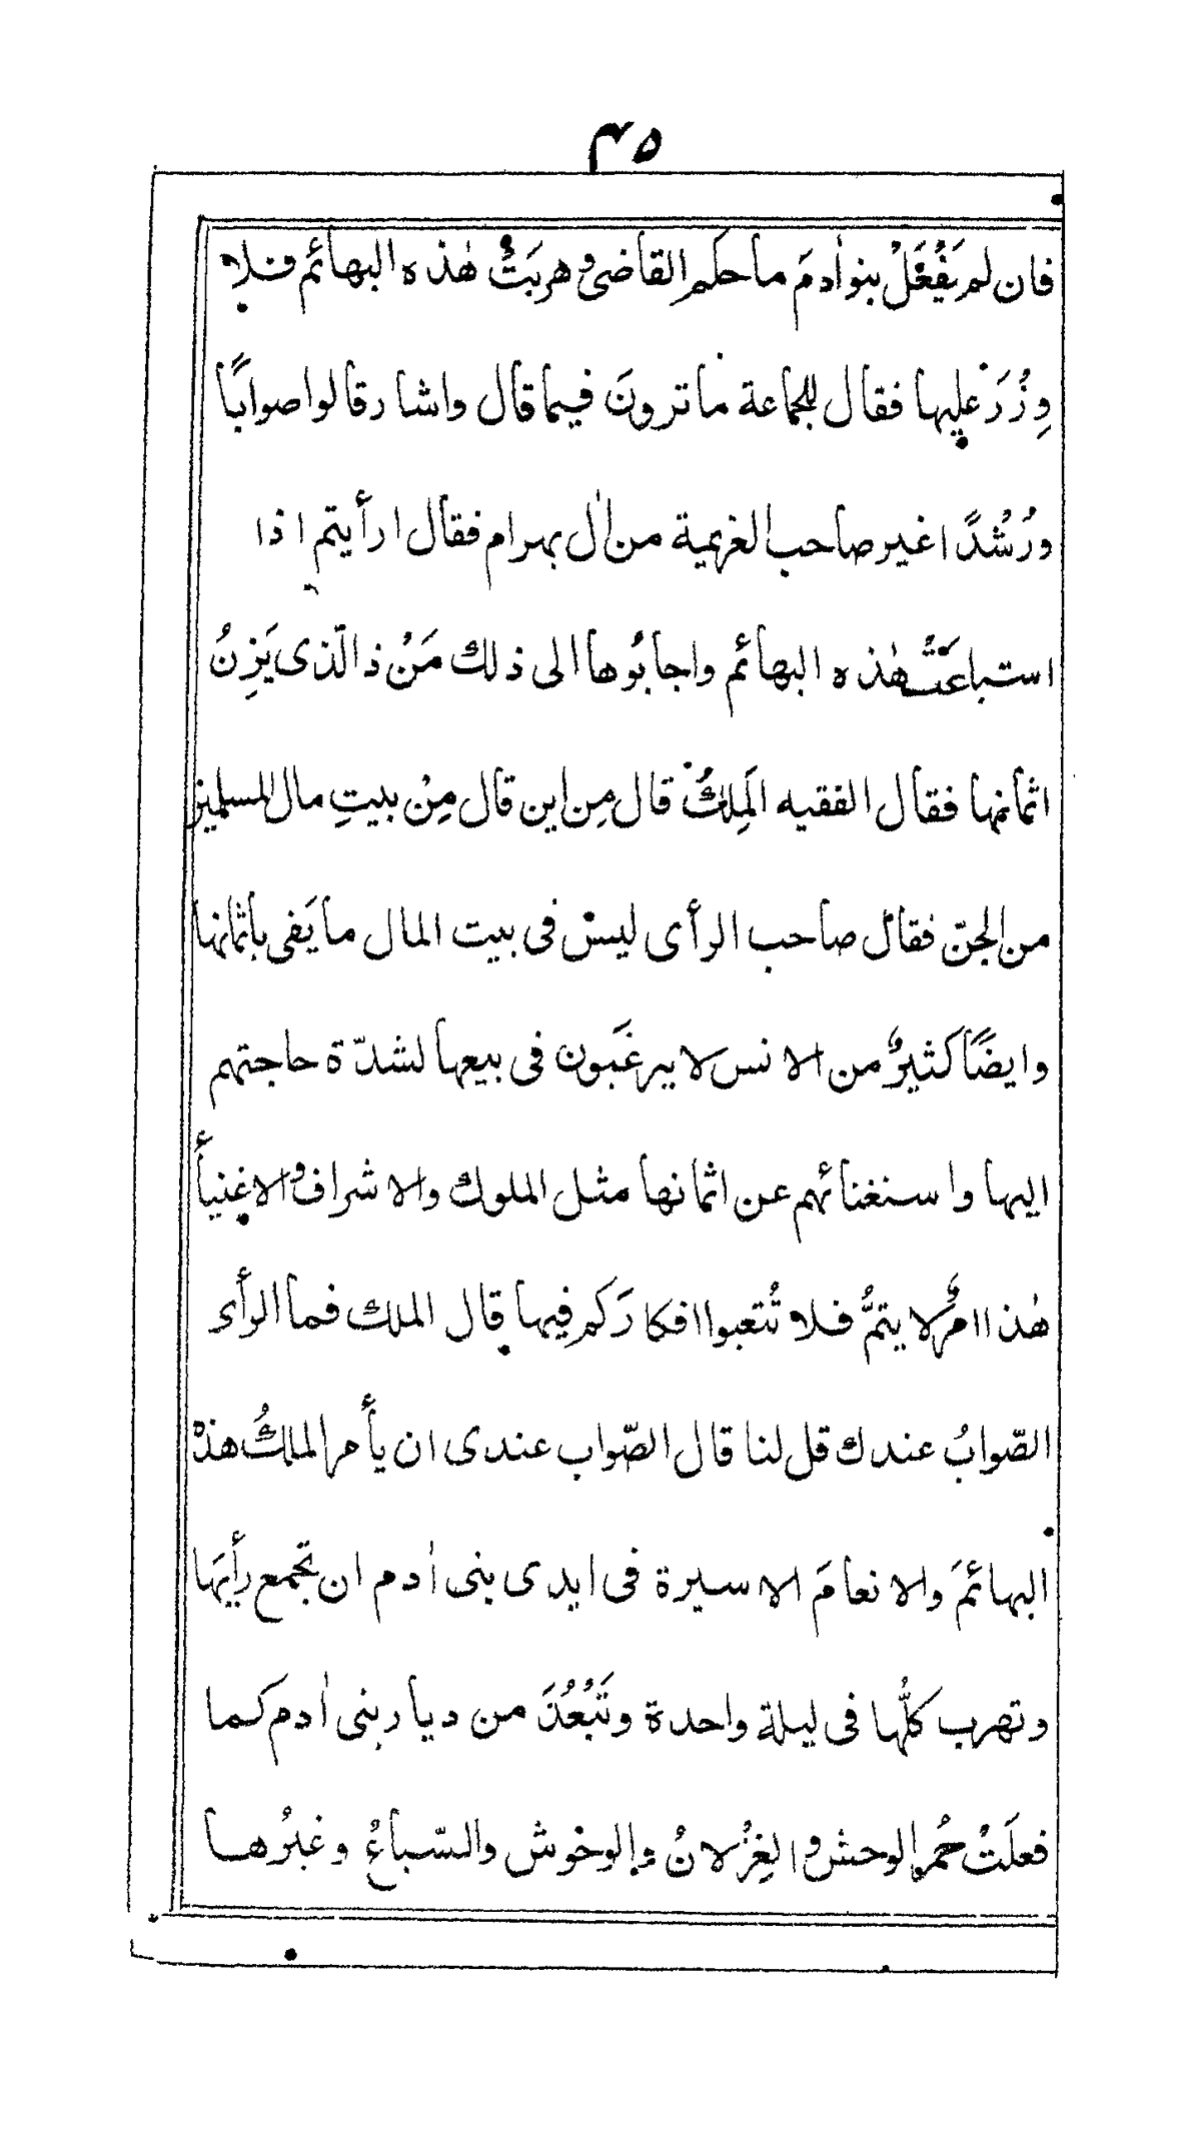 ۴۵
فان لم يَفْعَلْ بنو اٰدمَ ما حكم القاضى و هربَتْ هٰذه البهائم فلا
وِزْرَ عليها فقال للجماعة ما ترونَ فيما قال واشار قالوا صوابًا
ورُشدًا غير صاحب العزيمة من اٰل بهرام فقال ارأيتم اذا
استباعَتْ هٰذه البهائم واجابُوها الى ذلك مَنْ ذا الّذى يَزِنُ
اثمانها فقال الفقيه المَلِكُ قال مِن اين قال مِنْ بيتِ مال المسلمين
من الجنّ فقال صاحب الرأى ليسْ فى بيت المال ما يَفى باثمانها
وايضًا كثيرٌ من الانس لا يرغَبون فى بيعها لشدّة حاجتهم
اليها واستغنائهم عن اثمانها مثل الملوك والاشراف والاغنيأ
هٰذا امرٌ لا يتمُّ فلا تُتعبوا افكارَكم فيها قال الملك فما الرأى
الصّوابُ عندك قل لنا قال الصّواب عندى ان يأمر الملكُ هذه
البهائمَ والانعامَ الاسيرة فى ايدى بنى اٰدم ان تجمع رأيَها
وتهرب كلُّها فى ليلة واحدة وتَبْعُدَ من ديار بنى اٰدم كما
فعلَتْ حُمر الوحش والغِزْلانُ والوحوش والسّباعُ وغيرُها